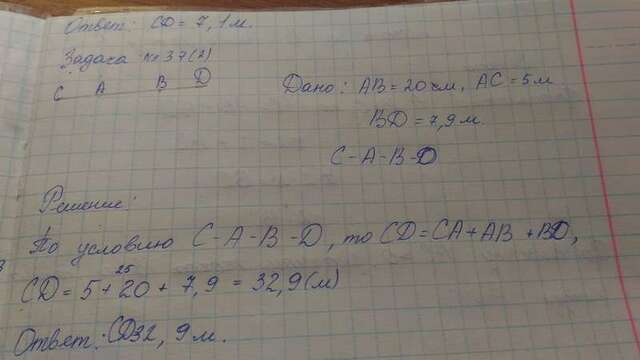 Ответ: CD = 7,1 м.
Задача № 37(2)
C A B D
Дано: AB = 20 см, AC = 5 м
BD = 7,9 м.
C - A - B - D
Решение:
По условию C - A - B - D, то CD = CA + AB + BD,
25
CD = 5 + 20 + 7,9 = 32,9 (м)
Ответ: CD 32,9 м.